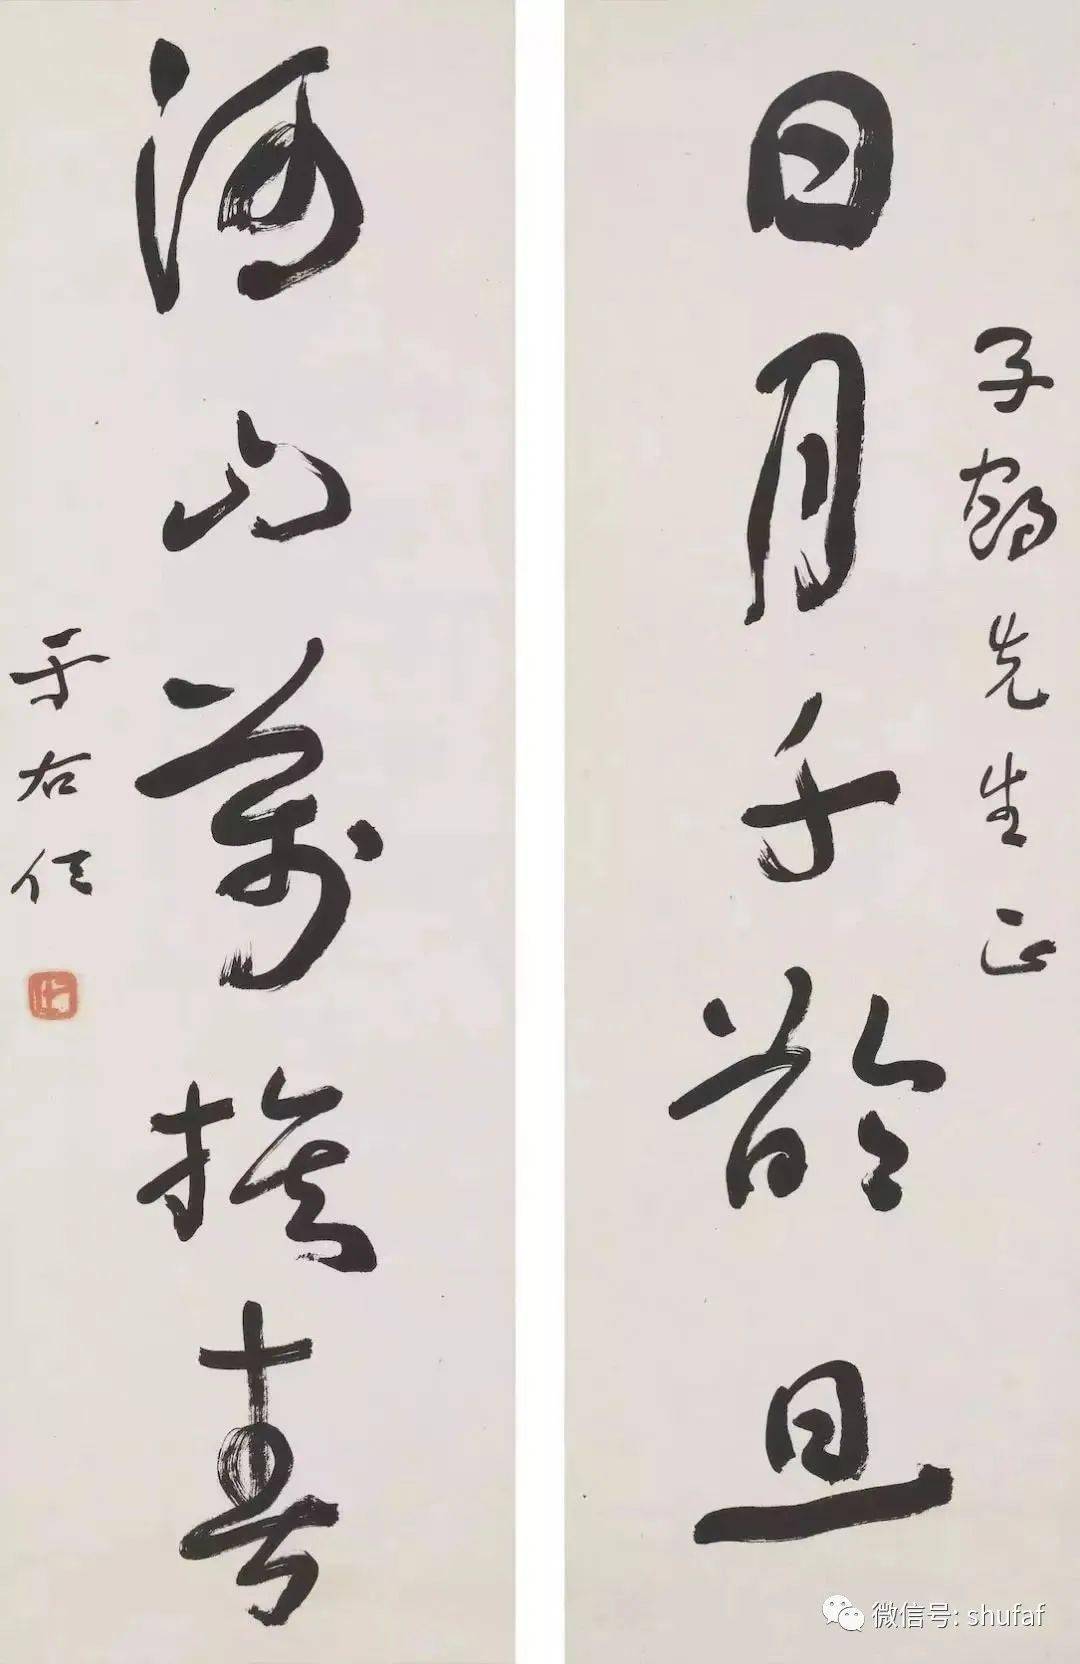 子鶴先生正
日月千齡旦
河山萬族春
于右任
微信号: shufaf